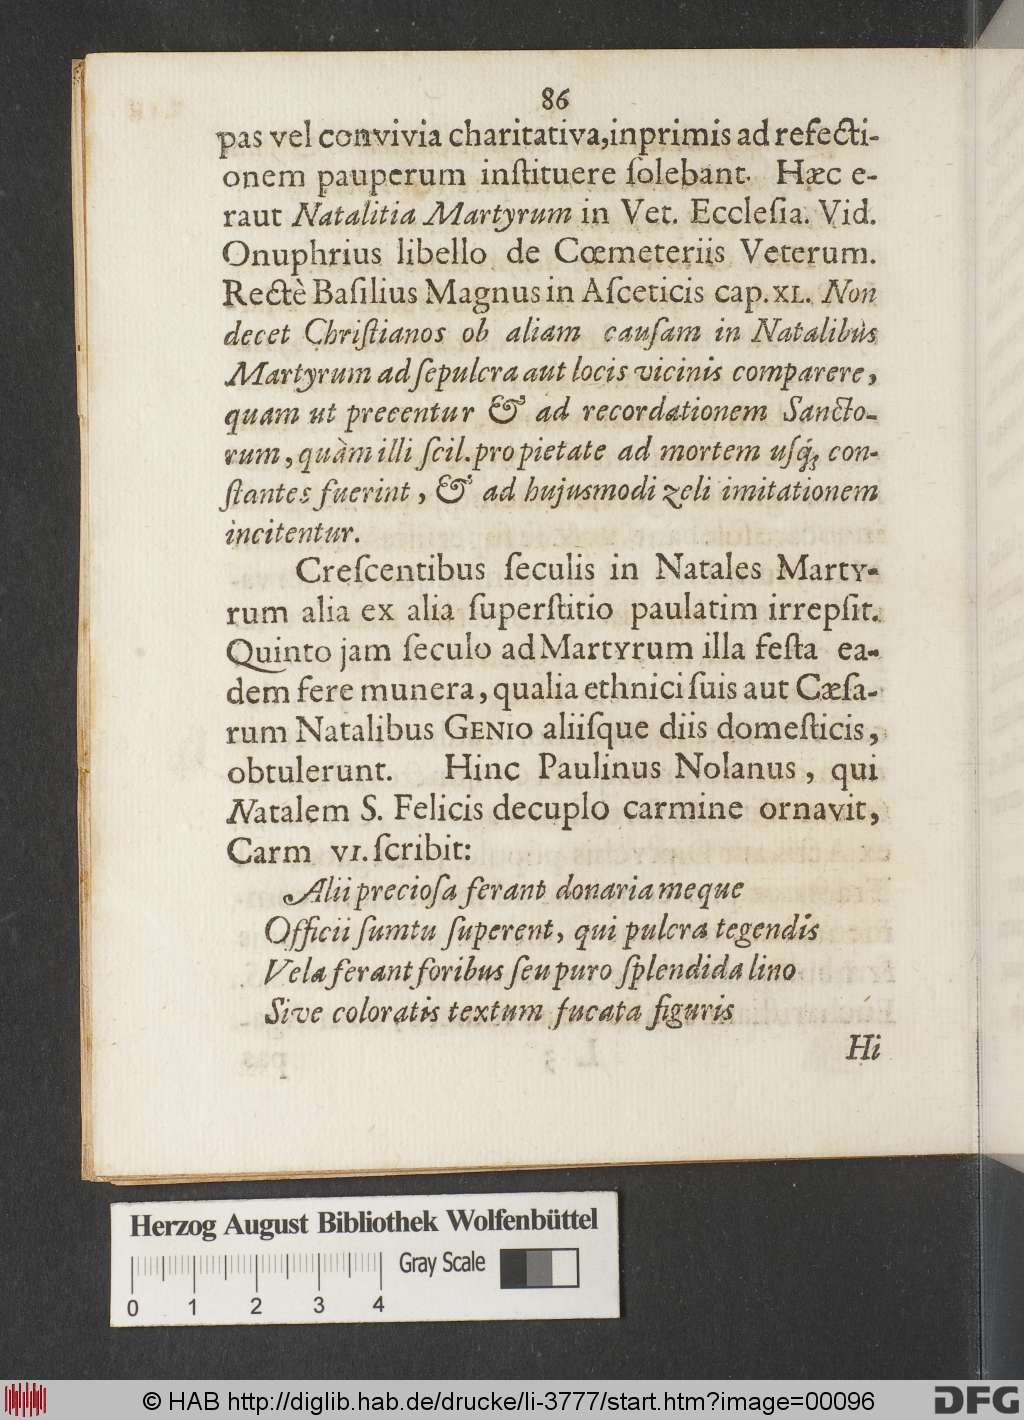 86
pas vel convivia charitativa,inprimis ad refecti-
onem pauperum inſtituere ſolebant. Hæc e-
raut Natalitia Martyrum in Vet. Eccleſia. Vid.
Onuphrius libello de Cœmeteriis Veterum.
Rectè Baſilius Magnus in Aſceticis cap. XL. Non
decet Chriſtianos ob aliam cauſam in Natalibùs
Martyrum ad ſepulcra aut locis vicinis comparere,
quam ut precentur & ad recordationem Sancto-
rum, quàm illi ſcil. pro pietate ad mortem uſq́; con-
ſtantes fuerint, & ad hujusmodi zeli imitationem
incitentur.
Creſcentibus ſeculis in Natales Marty-
rum alia ex alia ſuperſtitio paulatim irrepſit.
Quinto jam ſeculo ad Martyrum illa feſta ea-
dem fere munera, qualia ethnici ſuis aut Cæſa-
rum Natalibus GENIO aliiſque diis domeſticis,
obtulerunt. Hinc Paulinus Nolanus, qui
Natalem S. Felicis decuplo carmine ornavit,
Carm VI. ſcribit:
Alii precioſa ferant donaria meque
Officii ſumtu ſuperent, qui pulcra tegendis
Vela ferant foribus ſeu puro ſplendida lino
Sive coloratis textum fucata figuris
Hi
Herzog August Bibliothek Wolfenbüttel
Gray Scale
0 1 2 3 4
© HAB http://diglib.hab.de/drucke/li-3777/start.htm?image=00096
DFG